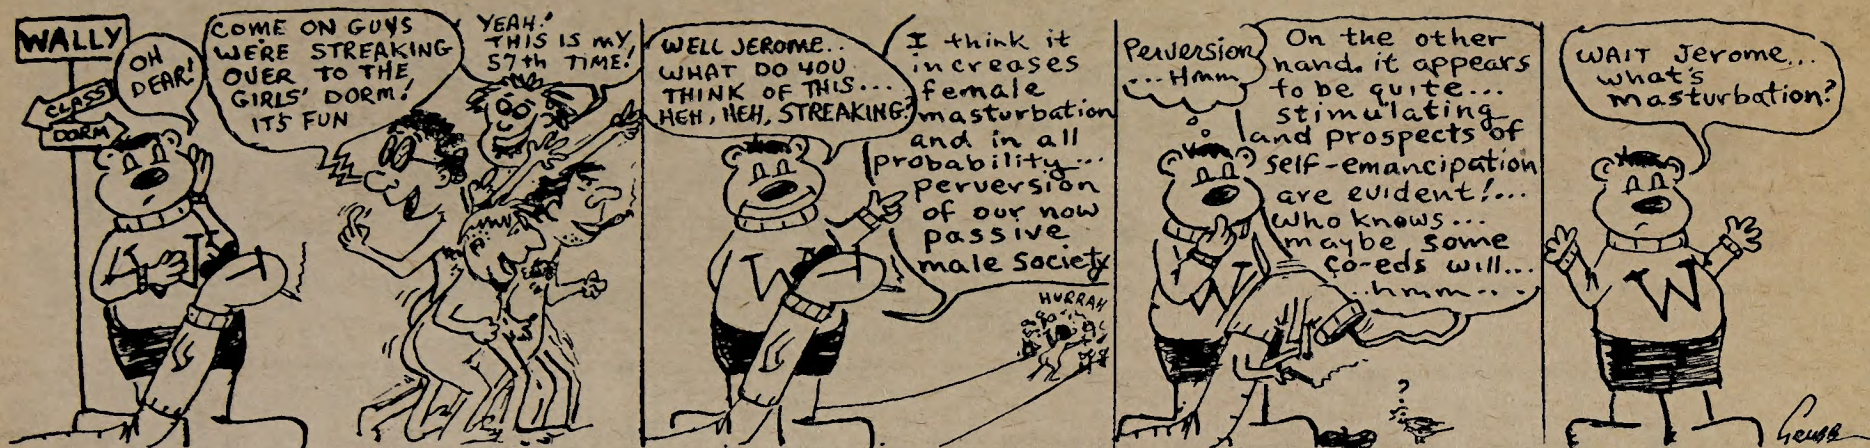 WALLY
CLASS
DORM
OH
DEAR!
COME ON GUYS
WE'RE STREAKING
OVER TO THE
GIRLS' DORM!
IT'S FUN
YEAH!
THIS IS MY
57th TIME!
WELL JEROME..
WHAT DO YOU
THINK OF THIS...
HEH, HEH, STREAKING?
I think it
increases
female
masturbation
and in all
probability...
perversion
of our now
passive
male society
HURRAH
Perversion
...Hmm
On the other
hand, it appears
to be quite...
stimulating
and prospects of
self-emancipation
are evident!...
Who knows...
maybe some
co-eds will...
..hmm...
?
WAIT Jerome...
what's
masturbation?
W